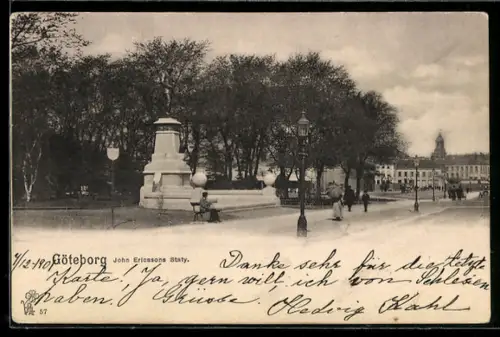 Göteborg John Ericssons Staty.
7/2 1901 Danke sehr für die letzte
Karte! Ja, gern will ich von Schlesien
haben. Grüsse Hedwig Kahl
57